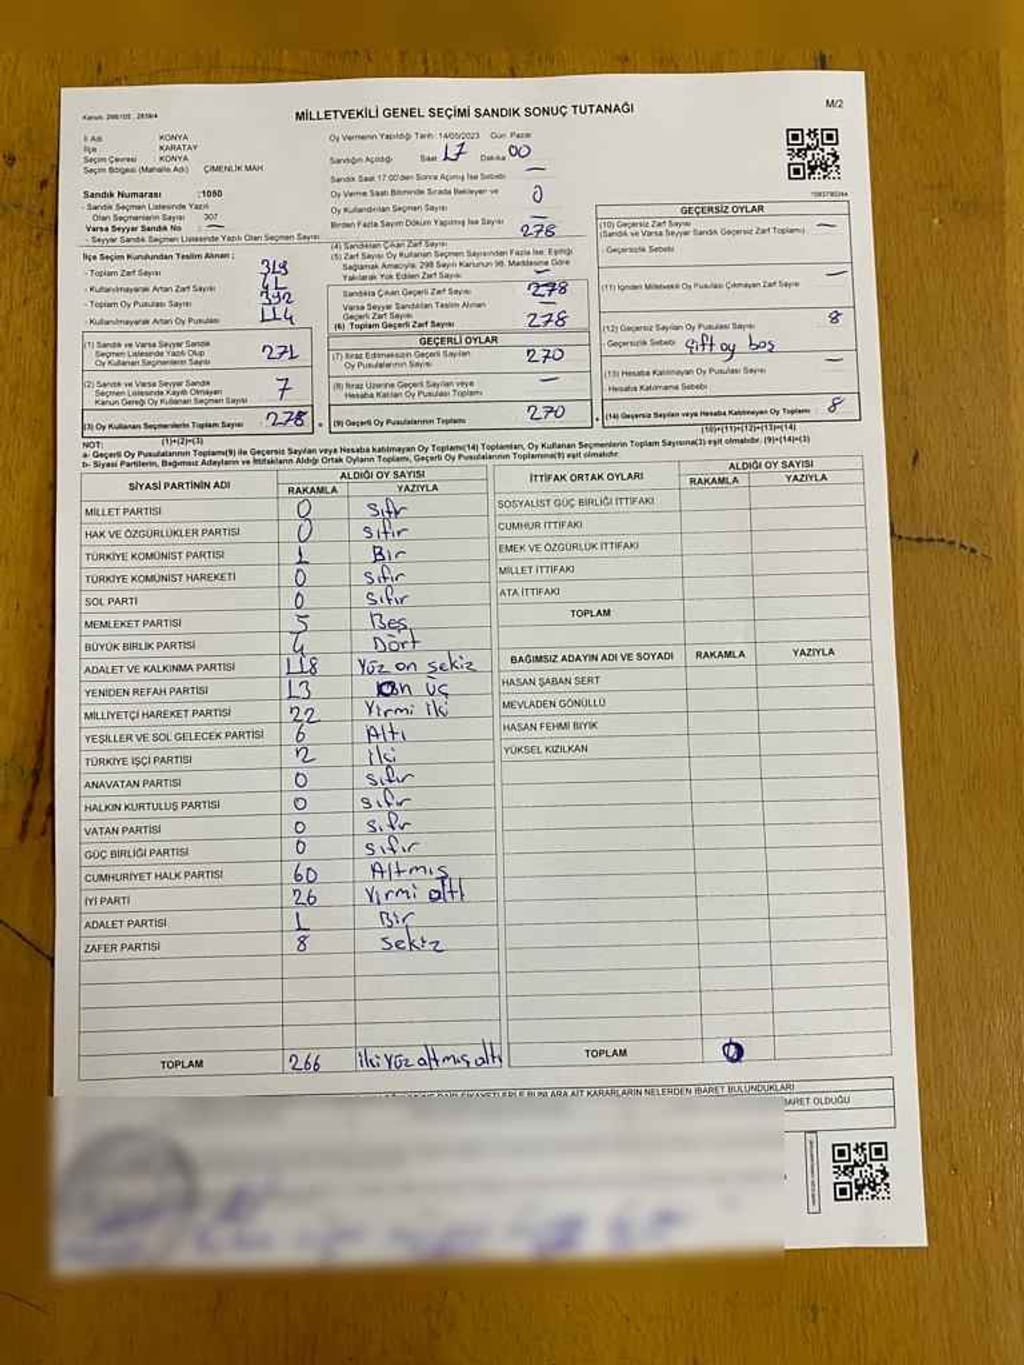 MİLLETVEKİLİ GENEL SEÇİMİ SANDIK SONUÇ TUTANAĞI
M/2
İl Adı KONYA
İlçe KARATAY
Seçim Çevresi : KONYA
Seçim Bölgesi (Mahalle Adı) : ÇİMENLİK MAH.
Sandık Numarası :1080
- Sandık Seçmen Listesinde Yazılı
Olan Seçmenlerin Sayısı 307
Varsa Seyyar Sandık No —
- Seyyar Sandık Seçmen Listesinde Yazılı Olan Seçmen Sayısı
İlçe Seçim Kurulundan Teslim Alınan ;
- Toplam Zarf Sayısı 319
- Kullanılmayarak Artan Zarf Sayısı 41
- Toplam Oy Pusulası Sayısı 392
- Kullanılmayarak Artan Oy Pusulası 114
(1) Sandık ve Varsa Seyyar Sandık
Seçmen Listesinde Yazılı Olup
Oy Kullanan Seçmenlerin Sayısı 271
(2) Sandık ve Varsa Seyyar Sandık
Seçmen Listesinde Kayıtlı Olmayan
Kanun Gereği Oy Kullanan Seçmen Sayısı 7
(3) Oy Kullanan Seçmenlerin Toplam Sayısı 278
(1)+(2)=(3)
Oy Vermenin Yapıldığı Tarih: 14/05/2023 Gün: Pazar
Sandığın Açıldığı Saat 17 Dakika 00
Sandık Saat 17:00'den Sonra Açılmış İse Sebebi —
Oy Verme Saati Bitiminde Sırada Bekleyen ve
Oy Kullandırılan Seçmen Sayısı 0
Birden Fazla Sayım Döküm Yapılmış İse Sayısı —
(4) Sandıktan Çıkan Zarf Sayısı 278
(5) Zarf Sayısı Oy Kullanan Seçmen Sayısından Fazla İse, Eşitliği
Sağlamak Amacıyla, 298 Sayılı Kanunun 98. Maddesine Göre
Yakılarak Yok Edilen Zarf Sayısı —
Sandıkta Çıkan Geçerli Zarf Sayısı 278
Varsa Seyyar Sandıktan Teslim Alınan
Geçerli Zarf Sayısı —
(6) Toplam Geçerli Zarf Sayısı 278
GEÇERLİ OYLAR
(7) İtiraz Edilmeksizin Geçerli Sayılan
Oy Pusulalarının Sayısı 270
(8) İtiraz Üzerine Geçerli Sayılan veya
Hesaba Katılan Oy Pusulası Toplamı —
(9) Geçerli Oy Pusulalarının Toplamı 270
GEÇERSİZ OYLAR
(10) Geçersiz Zarf Sayısı
(Sandık ve Varsa Seyyar Sandık Geçersiz Zarf Toplamı) —
- Geçersizlik Sebebi
(11) İçinden Milletvekili Oy Pusulası Çıkmayan Zarf Sayısı —
(12) Geçersiz Sayılan Oy Pusulası Sayısı 8
- Geçersizlik Sebebi Çift oy boş
(13) Hesaba Katılmayan Oy Pusulası Sayısı —
- Hesaba Katılmama Sebebi
(14) Geçersiz Sayılan veya Hesaba Katılmayan Oy Toplamı 8
(10)+(11)+(12)+(13)=(14)
NOT:
a- Geçerli Oy Pusulalarının Toplamı(9) ile Geçersiz Sayılan veya Hesaba Katılmayan Oy Toplamı(14) Toplamları, Oy Kullanan Seçmenlerin Toplam Sayısına(3) eşit olmalıdır. (9)+(14)=(3)
b- Siyasi Partilerin, Bağımsız Adayların ve İttifakların Aldığı Ortak Oyların Toplamı, Geçerli Oy Pusulalarının Toplamına(9) eşit olmalıdır.
SİYASİ PARTİNİN ADI ALDIĞI OY SAYISI
RAKAMLA YAZIYLA
MİLLET PARTİSİ 0 sıfır
HAK VE ÖZGÜRLÜKLER PARTİSİ 0 sıfır
TÜRKİYE KOMÜNİST PARTİSİ 1 Bir
TÜRKİYE KOMÜNİST HAREKETİ 0 sıfır
SOL PARTİ 0 sıfır
MEMLEKET PARTİSİ 5 Beş
BÜYÜK BİRLİK PARTİSİ 4 Dört
ADALET VE KALKINMA PARTİSİ 118 Yüz on sekiz
YENİDEN REFAH PARTİSİ 13 on üç
MİLLİYETÇİ HAREKET PARTİSİ 22 Yirmi iki
YEŞİLLER VE SOL GELECEK PARTİSİ 6 Altı
TÜRKİYE İŞÇİ PARTİSİ 2 iki
ANAVATAN PARTİSİ 0 sıfır
HALKIN KURTULUŞ PARTİSİ 0 sıfır
VATAN PARTİSİ 0 sıfır
GÜÇ BİRLİĞİ PARTİSİ 0 sıfır
CUMHURİYET HALK PARTİSİ 60 Altmış
İYİ PARTİ 26 Yirmi altı
ADALET PARTİSİ 1 Bir
ZAFER PARTİSİ 8 sekiz
TOPLAM 266 iki yüz altmış altı
İTTİFAK ORTAK OYLARI ALDIĞI OY SAYISI
RAKAMLA YAZIYLA
SOSYALİST GÜÇ BİRLİĞİ İTTİFAKI
CUMHUR İTTİFAKI
EMEK VE ÖZGÜRLÜK İTTİFAKI
MİLLET İTTİFAKI
ATA İTTİFAKI
TOPLAM
BAĞIMSIZ ADAYIN ADI VE SOYADI RAKAMLA YAZIYLA
HASAN ŞABAN SERT
MEVLADEN GÖNÜLLÜ
HASAN FEHMİ BIYIK
YÜKSEL KIZILKAN
TOPLAM 0
AİT KARARLARIN NELERDEN İBARET BULUNDUKLARI
İBARET OLDUĞU